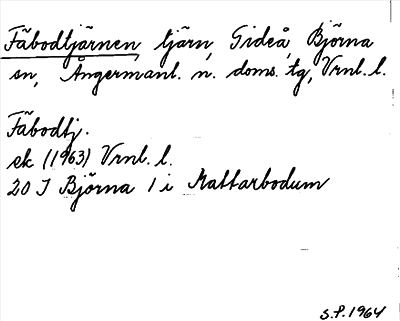 Fäbodtjärnen, tjärn, Gideå, Björna
sn, Ångermanl. n. doms. tg, Vrnl. l.
Fäbodtj.
ek (1963) Vrnl. l.
20 I Björna 1 i Mattarbodum
S.P. 1964